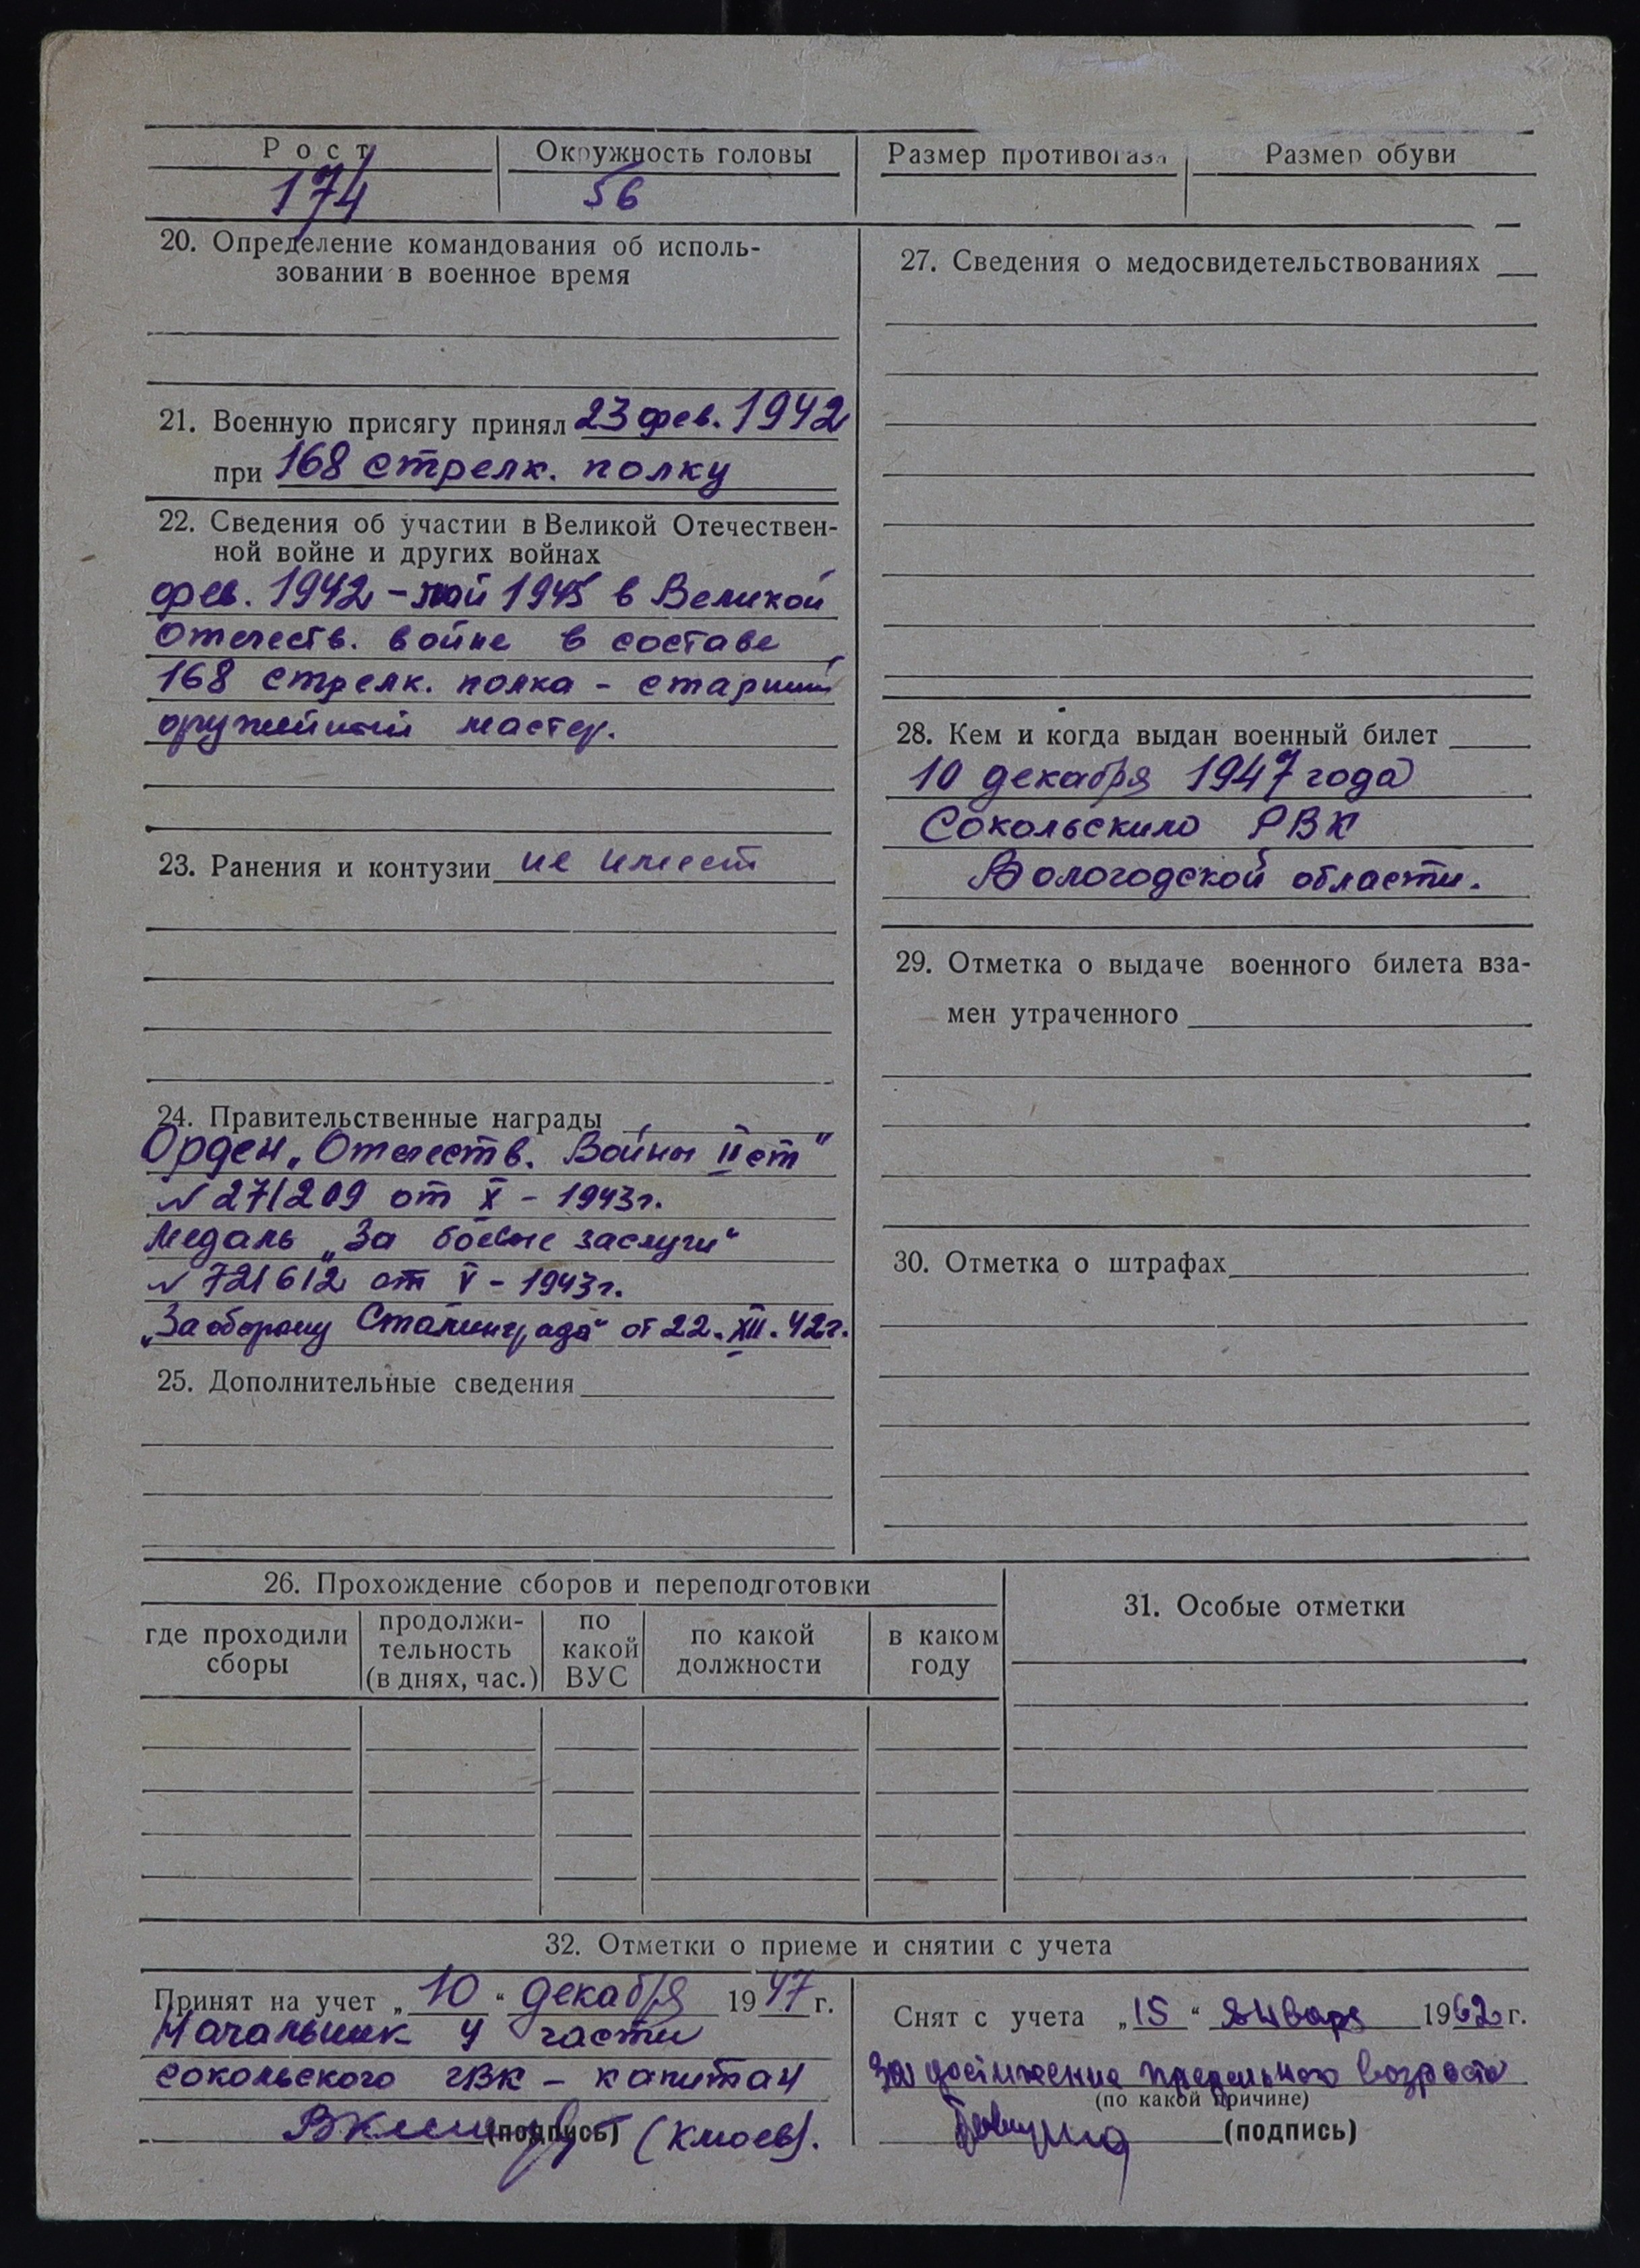 Рост
Окружность головы
Размер противогаза
Размер обуви
174
56
20. Определение командования об исполь-
зовании в военное время
21. Военную присягу принял 23 фев. 1942
при 168 стрелк. полку
22. Сведения об участии в Великой Отечествен-
ной войне и других войнах
фев. 1942 - май 1945 в Великой
Отечеств. войне в составе
168 стрелк. полка - старший
оружейный мастер.
23. Ранения и контузии не имеет
24. Правительственные награды
Орден „Отечеств. Войны II ст"
N 271209 от X - 1943г.
Медаль „За боевые заслуги"
N 721612 от V - 1943г.
„За оборону Сталинграда" от 22.XII.42г.
25. Дополнительные сведения
27. Сведения о медосвидетельствованиях
28. Кем и когда выдан военный билет
10 декабря 1947 года
Сокольским РВК
Вологодской области.
29. Отметка о выдаче военного билета вза-
мен утраченного
30. Отметка о штрафах
26. Прохождение сборов и переподготовки
где проходили
сборы
продолжи-
тельность
(в днях, час.)
по
какой
ВУС
по какой
должности
в каком
году
31. Особые отметки
32. Отметки о приеме и снятии с учета
Принят на учет „10" декабря 1947 г.
Начальник 4 части
Сокольского гвк - капитан
(подпись)
Снят с учета „15" января 1962 г.
За достижение предельного возраста
(по какой причине)
(подпись)